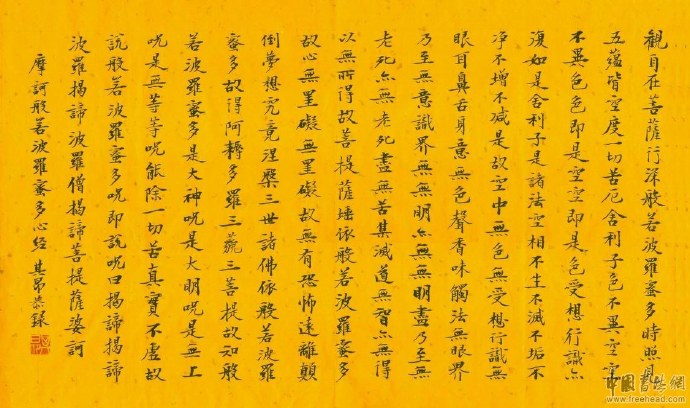 觀自在菩薩行深般若波羅蜜多時照見
五蘊皆空度一切苦厄舍利子色不異空空
不異色色即是空空即是色受想行識亦
復如是舍利子是諸法空相不生不滅不垢不
淨不增不減是故空中無色無受想行識無
眼耳鼻舌身意無色聲香味觸法無眼界
乃至無意識界無無明亦無無明盡乃至無
老死亦無老死盡無苦集滅道無智亦無得
以無所得故菩提薩埵依般若波羅蜜多
故心無罣礙無罣礙故無有恐怖遠離顛
倒夢想究竟涅槃三世諸佛依般若波羅
蜜多故得阿耨多羅三藐三菩提故知般
若波羅蜜多是大神咒是大明咒是無上
咒是無等等咒能除一切苦真實不虛故
說般若波羅蜜多咒即說咒曰揭諦揭諦
波羅揭諦波羅僧揭諦菩提薩婆訶
摩訶般若波羅蜜多心經 其昂恭錄
中國書法網
www.freehead.com